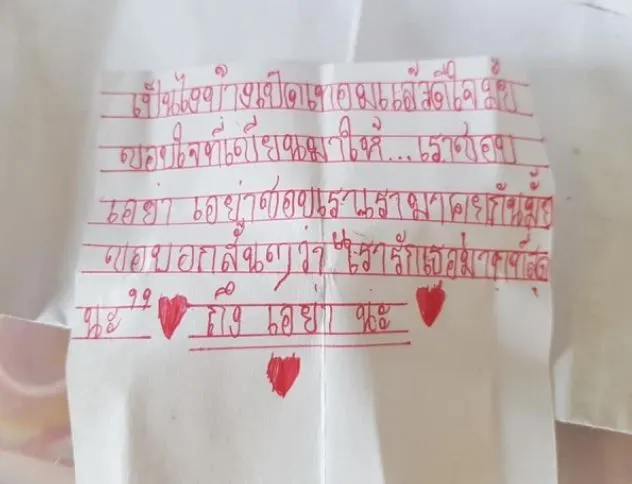 เป็นไงบ้างเปิดเทอมแล้วดีใจมั้ย
ขอบใจที่เขียนมาให้...เราชอบ
เอย่า เอย่าชอบเราเรามาคุยกันมั้ย
ขอบอกสั้นๆว่า "เรารักเธอมากที่สุด
นะ" ถึง เอย่า นะ